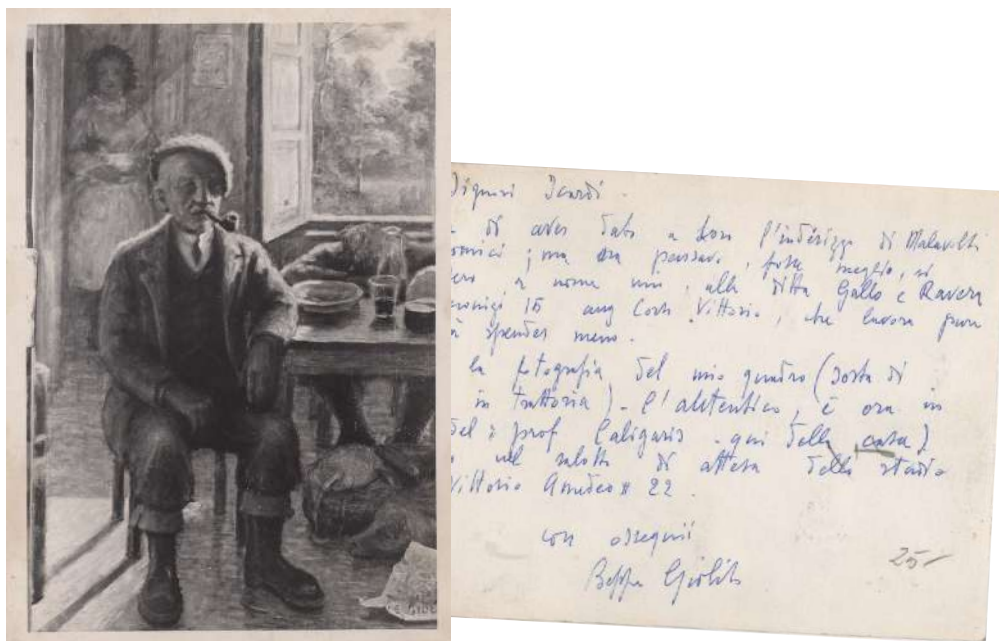 Signori Icardi.
di aver dato a loro l'indirizzo di Malavolti
; ma ora pensavo, forse meglio, si
a nome mio, alla ditta Gallo e Ravera
15 ang Corso Vittorio, che lavora pure
spender meno.
la fotografia del mio quadro (sosta di
in trattoria) - l'autentico, è ora in
del prof. Caligaris - qui della casa)
nel salotto di attesa dello studio
Vittorio Amedeo II 22.
con ossequii
Beppe
25-